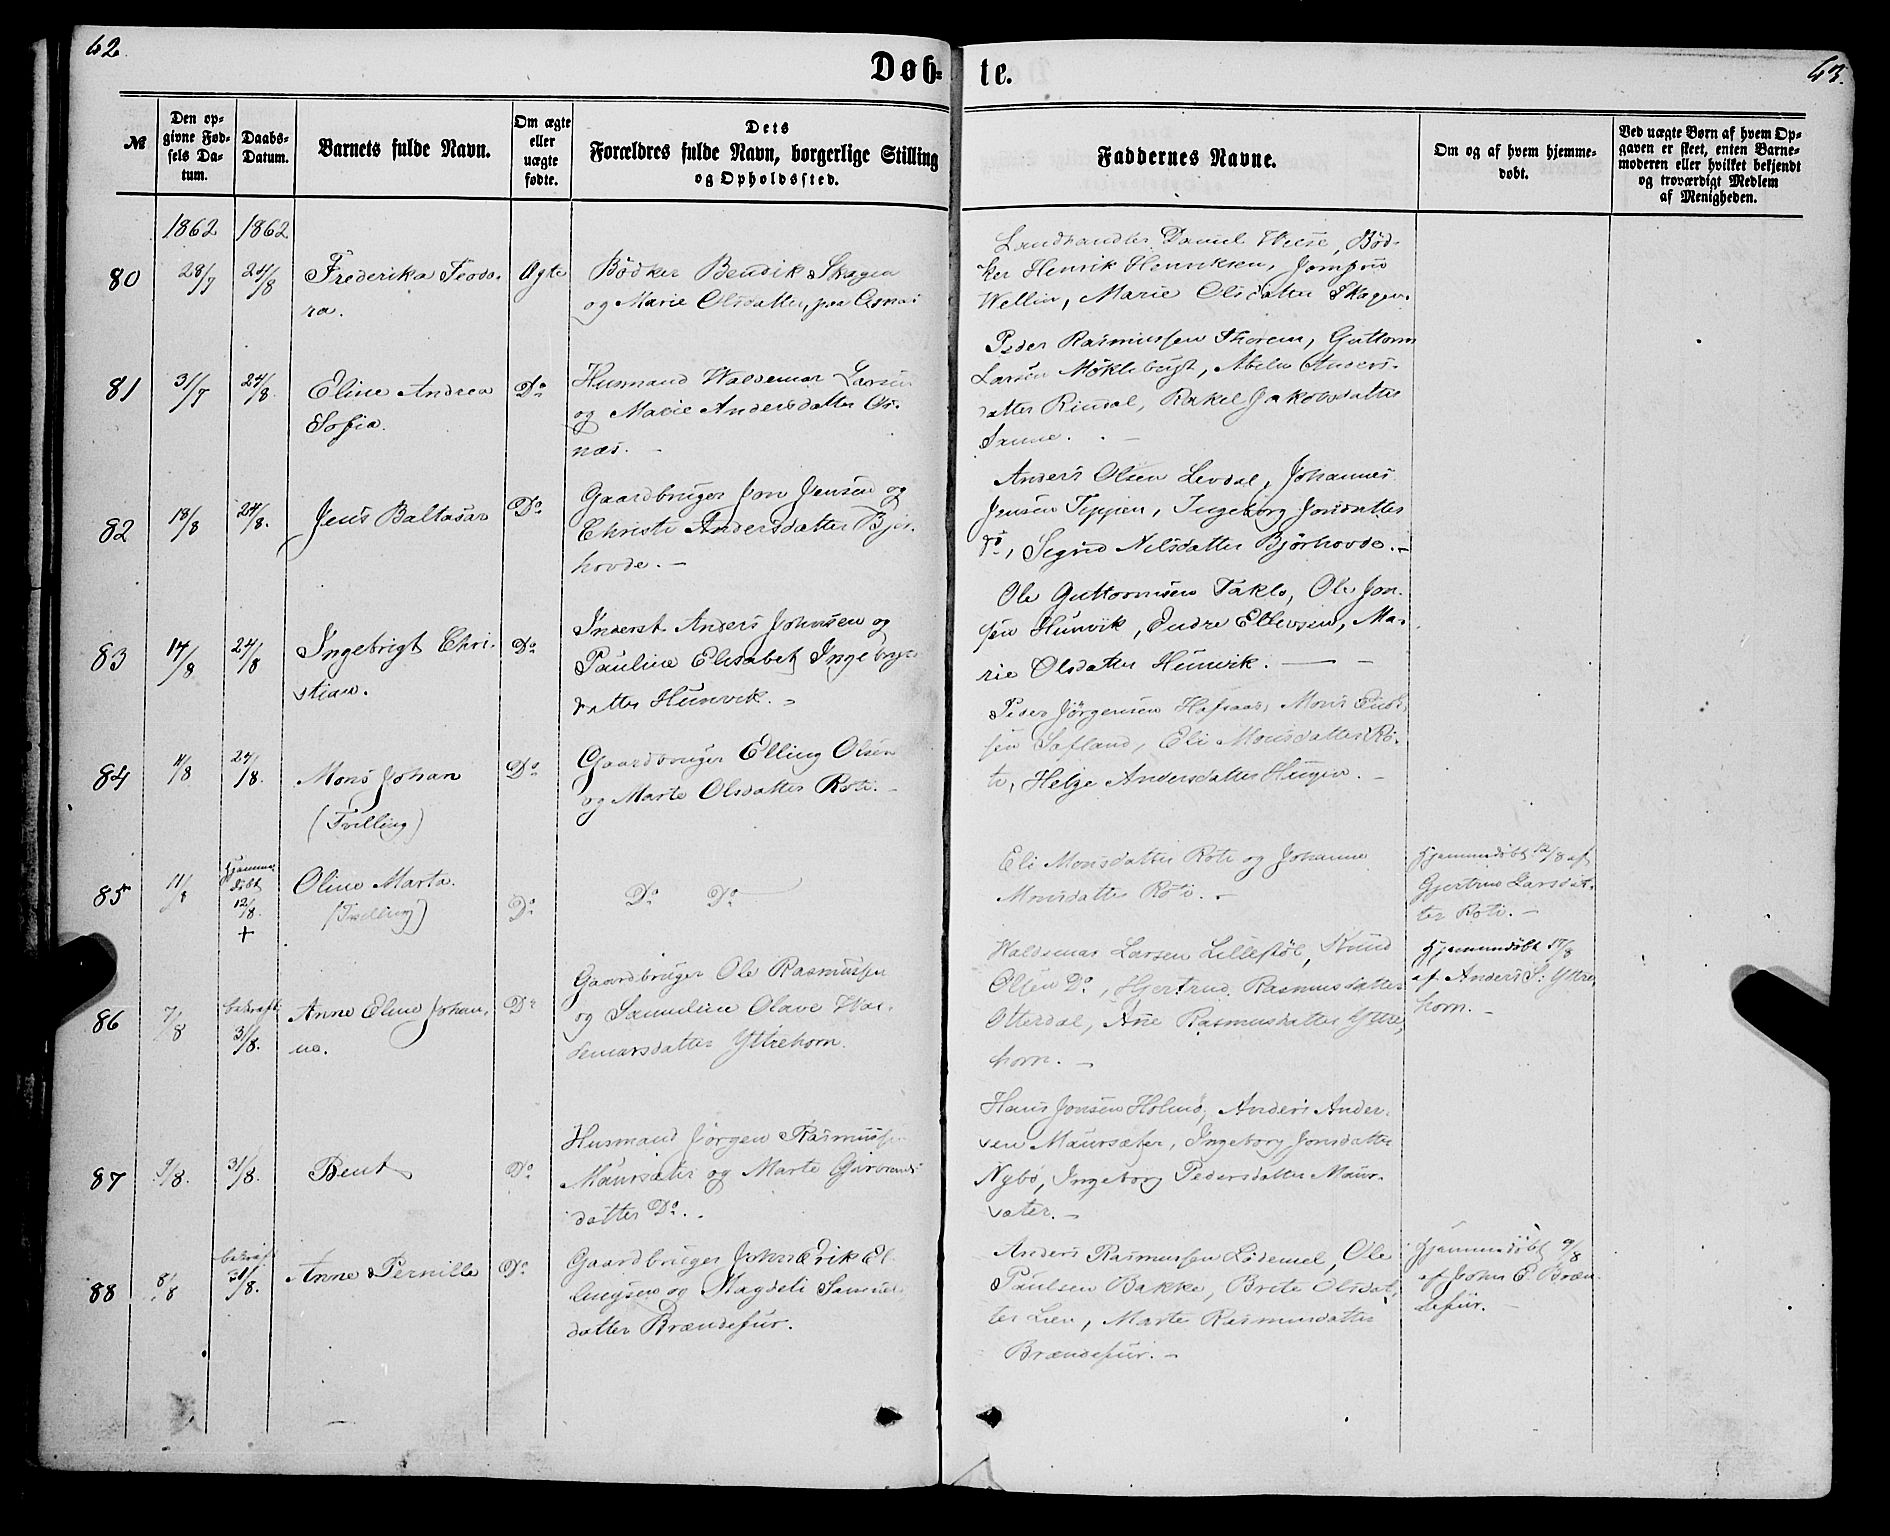 62.
Døb-
te.
63.
№
Den op-
givne Fød-
sels Da-
tum.
Daabs-
Datum.
Barnets fulde Navn.
Om ægte
eller
uægte
fødte.
Dets
Forældres fulde Navn, borgerlige Stilling
og Opholdssted.
Faddernes Navne.
Om og af hvem hjemme-
døbt.
Ved uægte Børn af hvem Op-
gaven er skeet, enten Barne-
moderen eller hvilket bekjendt
og troværdigt Medlem
af Menigheden.
1862 1862
80
28/7
24/8
Frederika Teodo-
ra.
Ægte
Bödker Bendik Skagen
og Marie Olsdatter, paa Osnæs
Landhandler Daniel Wiese, Bød-
ker Henrik Henriksen, Jomfru
Wellin, Marie Olsdatter Skagen.
81
31/7
24/8.
Eline Andrea
Sofia.
Do
Husmand Waldemar Larsen
og Marie Andersdatter Os-
næs.
Peder Rasmussen Thorem, Guttorm
Larsen Möklebust, Abelu Anders-
datter Rindal, Rakel Jakobsdatter
Sanne.
82
18/8
24/8.
Jens Baltasar
Do
Gaardbruger Jon Jensen og
Christi Andersdatter Bjør-
hovde.
Anders Olsen Levdal, Johannes
Jensen Teppen, Ingeborg Jonsdatter
Do, Sigrid Nilsdatter Bjørhovde.
83
14/8
24/8
Ingebrigt Chri-
stian.
Do
Inderst Anders Johnsen og
Pauline Elisabet Ingebrigts
datter Hunvik.
Ole Guttormsen Taklo, Ole Jon-
sen Hunvik, Endre Ellevsen, Ma-
rie Olsdatter Hunvik.
84
11/8
24/8.
Mons Johan
(Tvilling)
Do
Gaardbruger Elling Olsen
og Marte Olsdatter Rote.
Peder Jörgensen Hafsaas, Mons
sen Sætland, Eli Monsdatter Ro-
te, Helge Andersdatter Haugen.
85
11/8
Hjemme
döbt
12/8.
+
Oline Marta.
(Tvilling)
Do
Do Do
Eli Monsdatter Rote og Johanne
Monsdatter Rote.
Hjemmedöbt 12/8 af
Gjertrud Larsdat-
ter Rote.
86
7/8
bekræft
31/8.
Anne Eline Johan-
na.
Do
Gaardbruger Ole Rasmussen
og Samuline Olave Wal-
demarsdatter Yttrehorn.
Waldemar Larsen Lillestöl, Knud
Olsen Do, Hjertrud Rasmusdatter
Otterdal, Ane Rasmusdatter Yttre-
horn.
Hjemmedöbt 17/8
af Anders S. Yttre
horn.
87
9/8.
31/8.
Bent
Do
Husmand Jörgen Rasmussen
Maursæter og Marte Garbrands
datter Do.
Hans Jonsen Holmö, Anders Ander-
sen Maursæter, Ingeborg Jonsdatter
Nybö, Ingeborg Pedersdatter Maur-
sæter.
88
8/8
bekræft
31/8.
Anne Pernille
Do
Gaardbruger John Erik El-
lingsen og Magdeli Samuels
datter Brændefur.
Anders Rasmussen Lödemel, Ole
Paulsen Bakke, Brite Olsdat-
ter Lien, Marte Rasmusdatter
Brændefur.
Hjemmedöbt 9/8
af John E. Bræn-
defur.